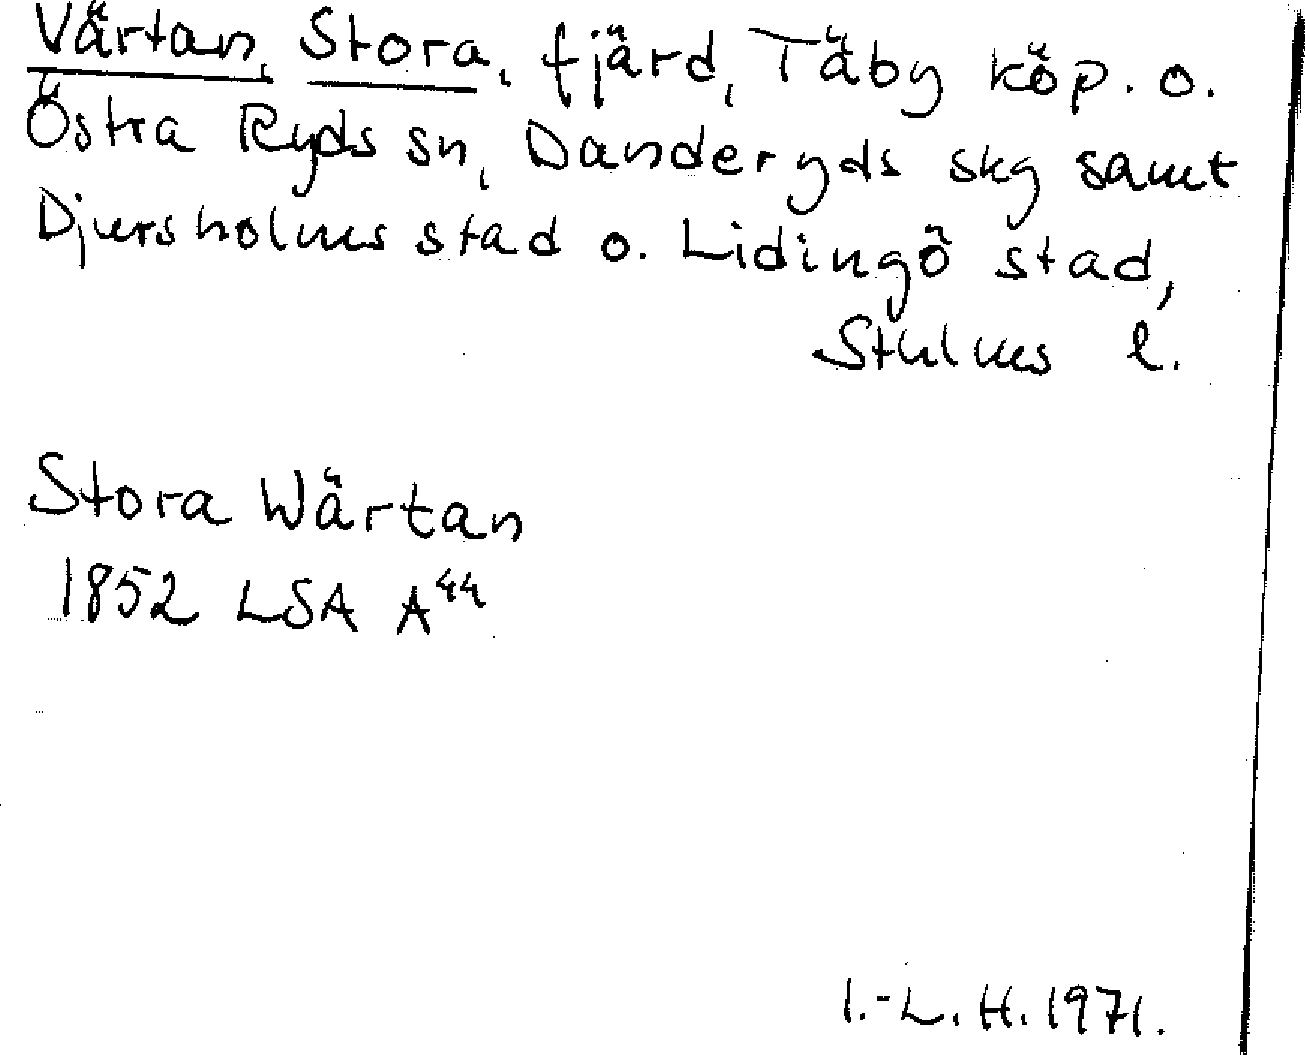 Värtan, Stora, fjärd, Täby köp. o.
Östra Ryds sn, Danderyds skg samt
Djursholms stad o. Lidingö stad,
Sthlms l.
Stora Wärtan
1852 LSA A⁴⁴
I.-L. H. 1971.